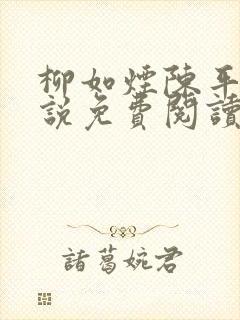 柳如煙陳平
說免費閱讀
諸葛婉君